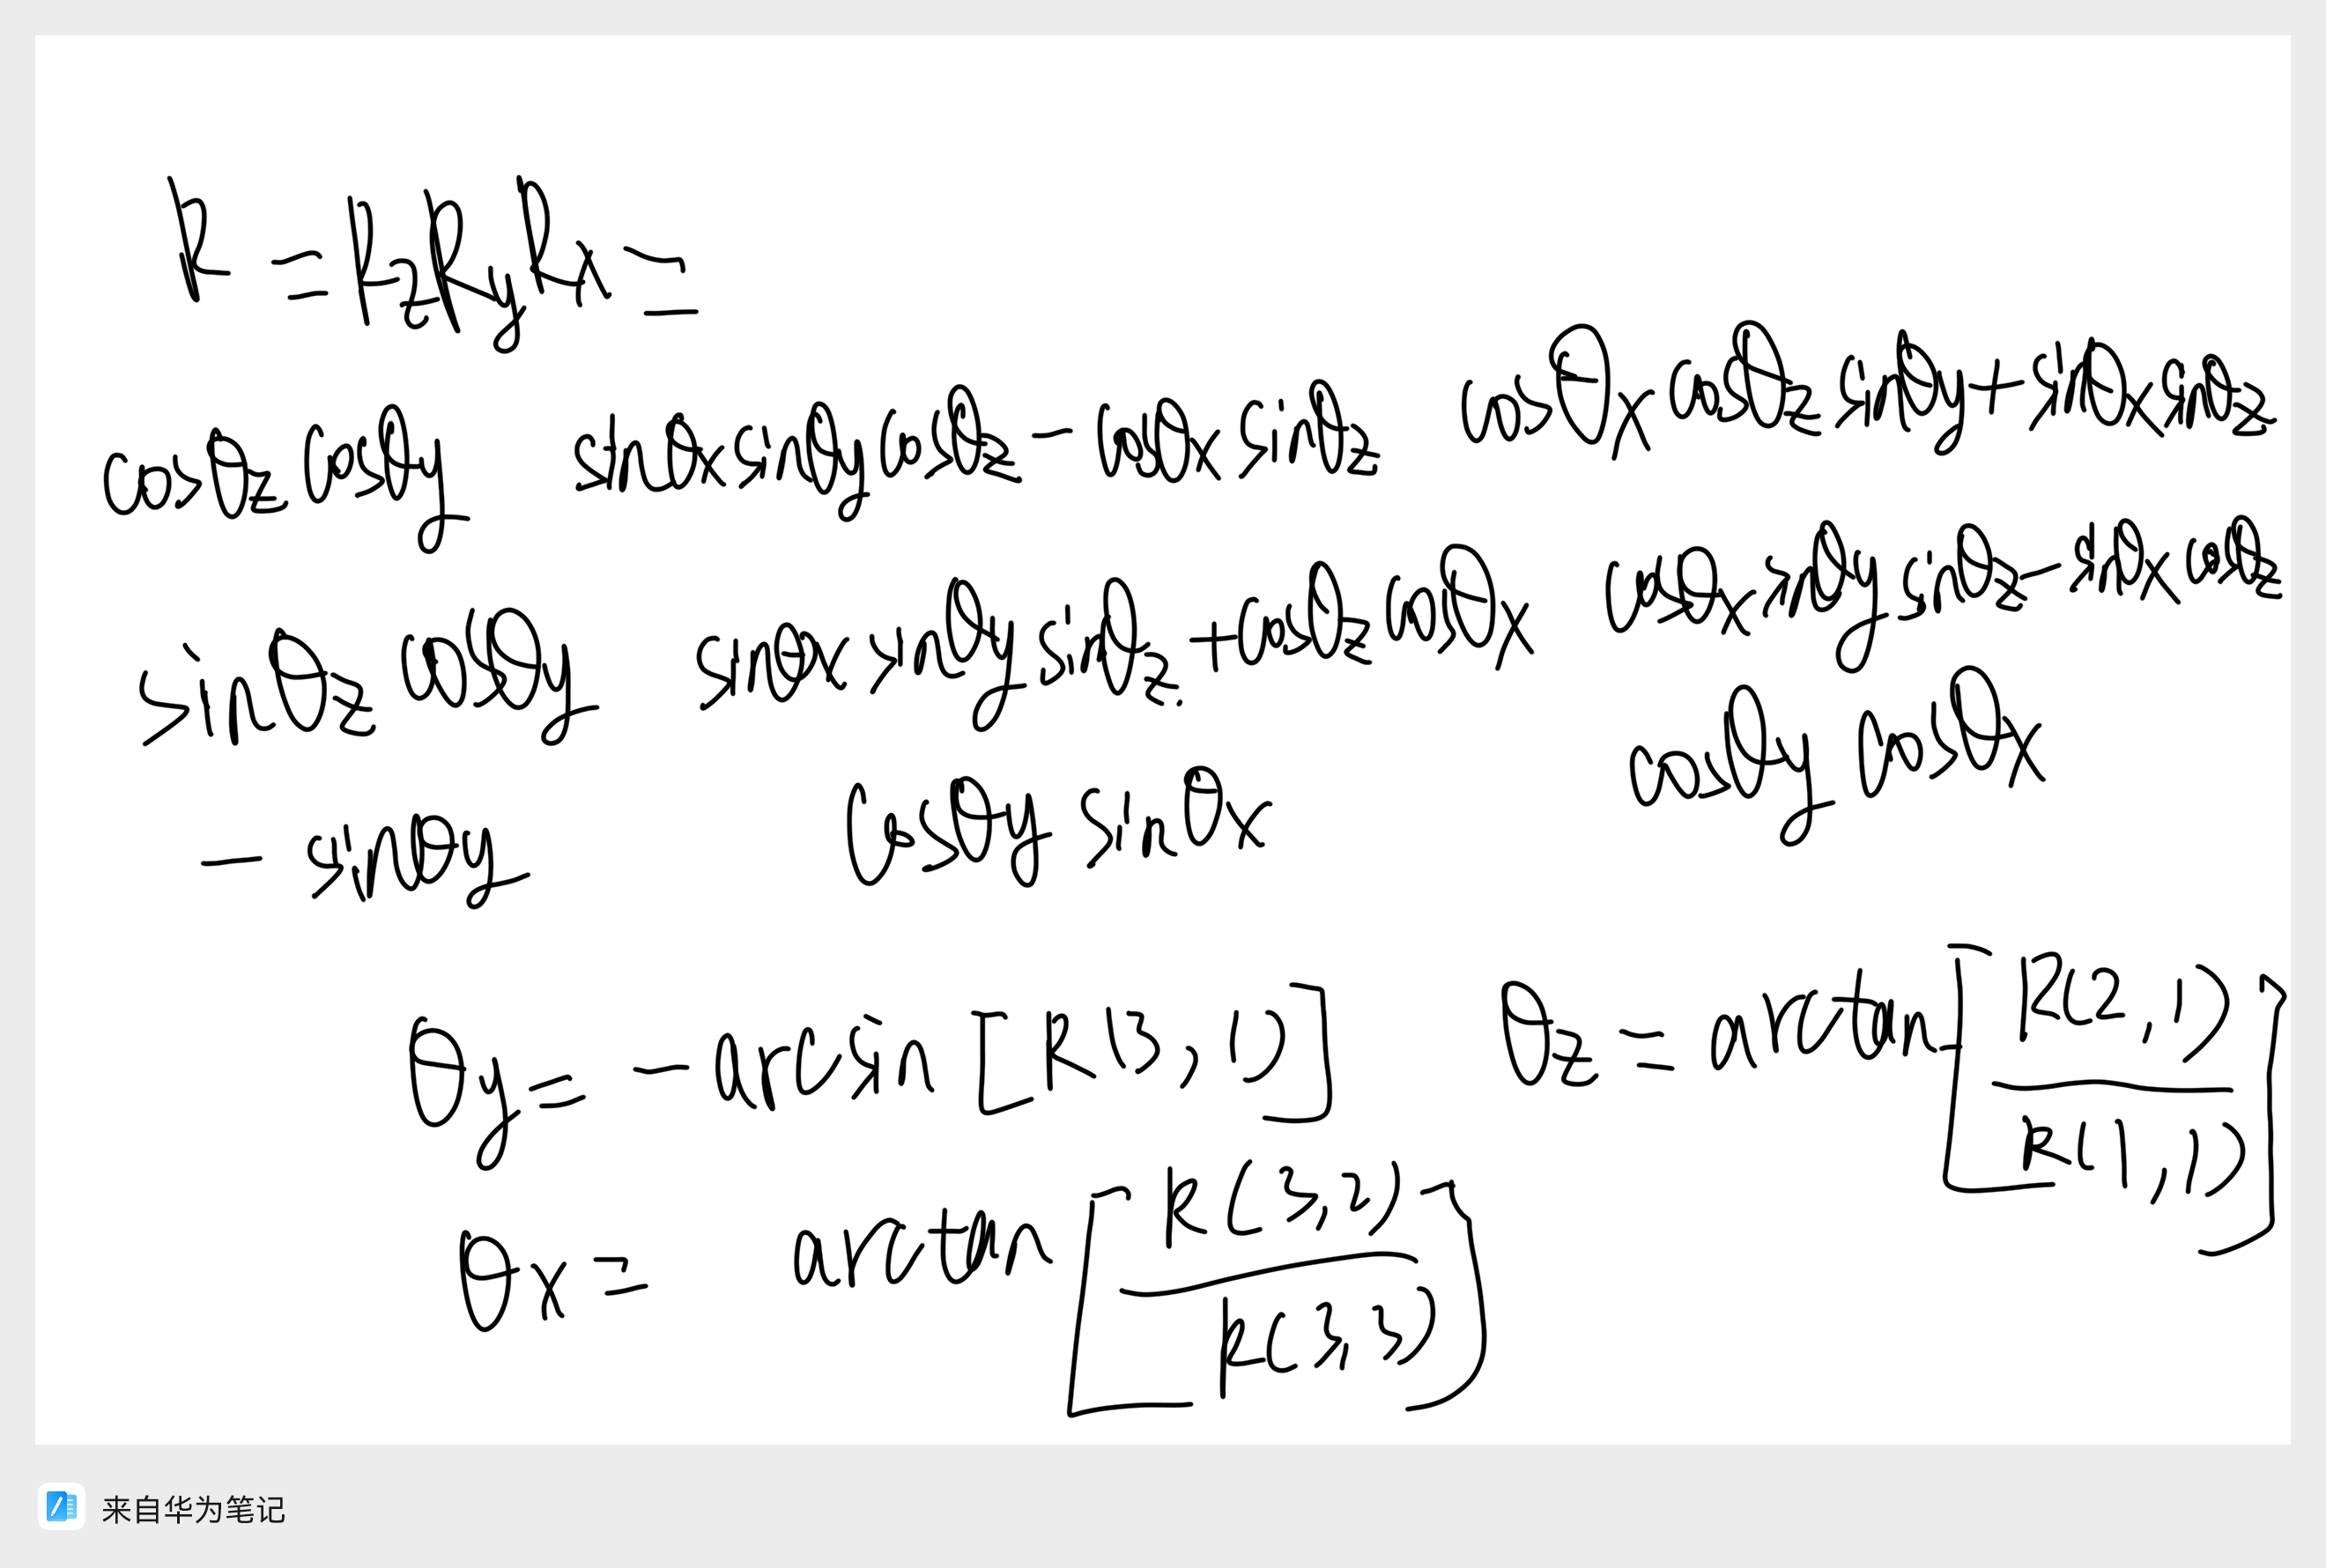 R = RzRyRx =
cosθz cosθy sinθx sinθy cosθz - cosθx sinθz cosθx cosθz sinθy + sinθx sinθz
sinθz cosθy sinθx sinθy sinθz + cosθz cosθx cosθx sinθy sinθz - sinθx cosθz
- sinθy cosθy sinθx cosθy cosθx
θy = - arcsin [R(3,1)] θz = arctan [R(2,1) / R(1,1)]
θx = arctan [R(3,2) / R(3,3)]
来自华为笔记